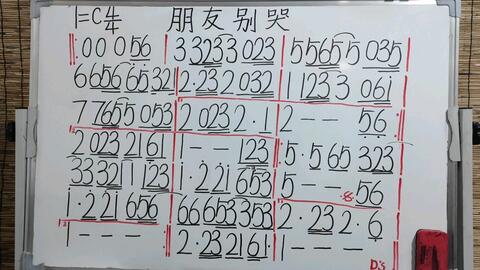 1=C 4/4 朋友别哭
0 0 0 56 3 3233 023 5 5655 035
6656 6532 2·232 032 11233 061
7 7655 053 2 0232·1 2 - - 56
2 023 2161 1 - - 123 5·565 323
3332 11 123 1·221653 5 - - 56
1·221656 66653353 2·232·6
1 - - - 2·232161 1 - - -
D%